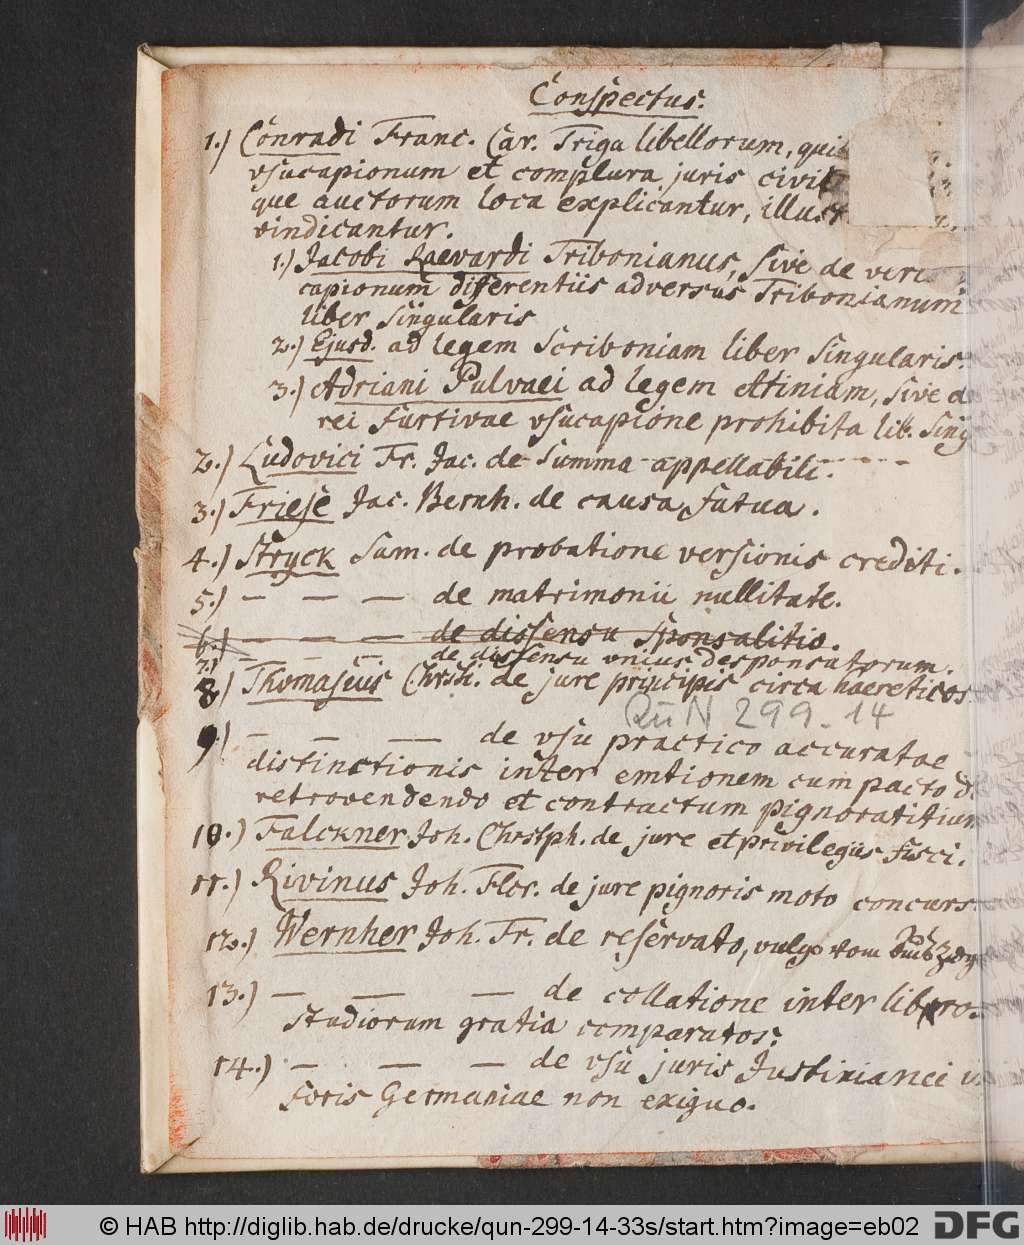 Conspectus.
1.) Conradi Franc. Car. Triga libellorum, qui
vsucapionum et complura juris civil
que auctorum loca explicantur, illust
vindicantur.
1.) Jacobi Raevardi Tribonianus, Sive de veris
capionum differentiis adversus Tribonianum
liber Singularis
2.) Ejusd. ad legem Scriboniam liber Singularis.
3.) Adriani Pulvaei ad legem Atiniam, Sive de
rei furtivae vsucapione prohibita lib. Sing
2.) Ludovici Fr. Jac. de Summa appellabili.
3.) Friese Jac. Bernh. de causa fatua.
4.) Stryck Sam. de probatione versionis crediti.
5.) — — — de matrimonii nullitate.
6.) — — — de dissensu Sponsalitio.
7.) — — — de dissensu vnius desponsatorum.
8.) Thomasius Christi. de jure principis circa haereticos.
QuN 299.14
9.) — — — de vsu practico accuratae
distinctionis inter emtionem cum pacto de
retrovendendo et contractum pignoratitium
10.) Falckner Joh. Christph. de jure et privilegiis fisci.
11.) Rivinus Joh. Flor. de jure pignoris moto concurs
12.) Wernher Joh. Fr. de reservato, vulgo vom
13.) — — — de collatione inter libero.
studiorum gratia comparatos.
14.) — — — de vsu juris Justinianei
foris Germaniae non exiguo.
© HAB http://diglib.hab.de/drucke/qun-299-14-33s/start.htm?image=eb02
DFG